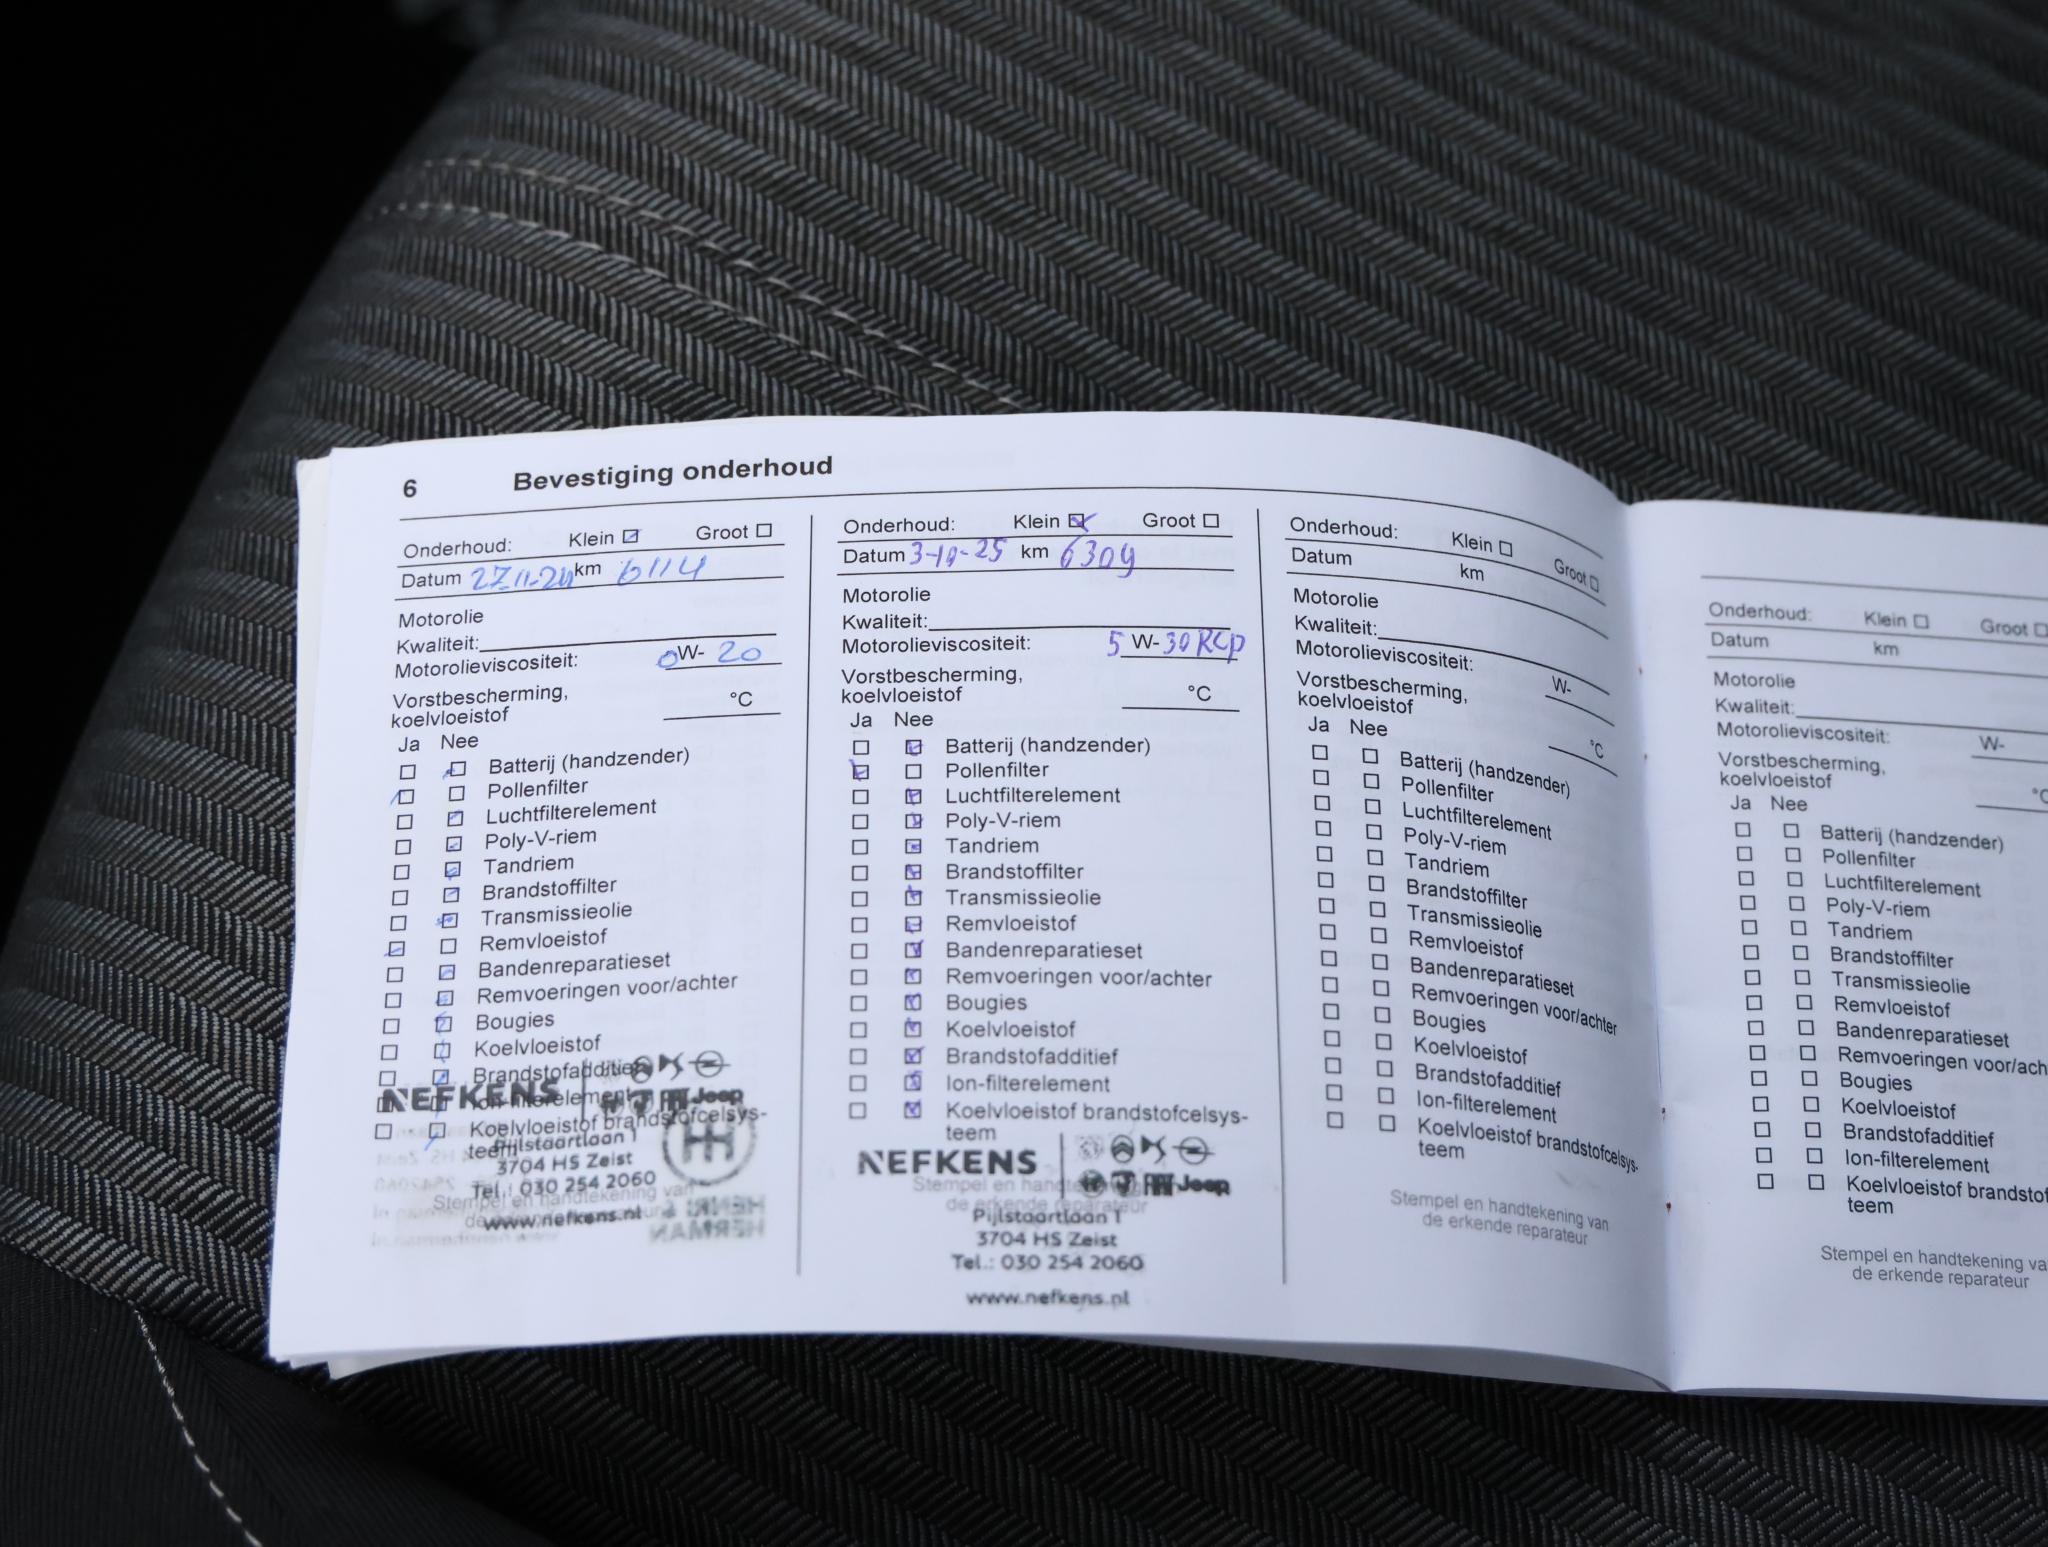 6 Bevestiging onderhoud
Onderhoud: Klein Groot
Datum 27-11-24 km 6114
Motorolie
Kwaliteit:
Motorolieviscositeit: 0 W- 20
Vorstbescherming,
koelvloeistof °C
Ja Nee
Batterij (handzender)
Pollenfilter
Luchtfilterelement
Poly-V-riem
Tandriem
Brandstoffilter
Transmissieolie
Remvloeistof
Bandenreparatieset
Remvoeringen voor/achter
Bougies
Koelvloeistof
Brandstofadditief
Ion-filterelement
Koelvloeistof brandstofcelsys-
teem
NEFKENS
FIAT Jeep
Pijlstaartlaan 1
3704 HS Zeist
Tel.: 030 254 2060
www.nefkens.nl
Stempel en handtekening van
de erkende reparateur
Onderhoud: Klein Groot
Datum 3-10-25 km 6309
Motorolie
Kwaliteit:
Motorolieviscositeit: 5 W-30 RCP
Vorstbescherming,
koelvloeistof °C
Ja Nee
Batterij (handzender)
Pollenfilter
Luchtfilterelement
Poly-V-riem
Tandriem
Brandstoffilter
Transmissieolie
Remvloeistof
Bandenreparatieset
Remvoeringen voor/achter
Bougies
Koelvloeistof
Brandstofadditief
Ion-filterelement
Koelvloeistof brandstofcelsys-
teem
NEFKENS
FIAT Jeep
Stempel en handtekening van
de erkende reparateur
Pijlstaartlaan 1
3704 HS Zeist
Tel.: 030 254 2060
www.nefkens.nl
Onderhoud: Klein Groot
Datum km
Motorolie
Kwaliteit:
Motorolieviscositeit: W-
Vorstbescherming,
koelvloeistof °C
Ja Nee
Batterij (handzender)
Pollenfilter
Luchtfilterelement
Poly-V-riem
Tandriem
Brandstoffilter
Transmissieolie
Remvloeistof
Bandenreparatieset
Remvoeringen voor/achter
Bougies
Koelvloeistof
Brandstofadditief
Ion-filterelement
Koelvloeistof brandstofcelsys-
teem
Stempel en handtekening van
de erkende reparateur
Onderhoud: Klein Groot
Datum km
Motorolie
Kwaliteit:
Motorolieviscositeit: W-
Vorstbescherming,
koelvloeistof °C
Ja Nee
Batterij (handzender)
Pollenfilter
Luchtfilterelement
Poly-V-riem
Tandriem
Brandstoffilter
Transmissieolie
Remvloeistof
Bandenreparatieset
Remvoeringen voor/ach
Bougies
Koelvloeistof
Brandstofadditief
Ion-filterelement
Koelvloeistof brandstof
teem
Stempel en handtekening va
de erkende reparateur